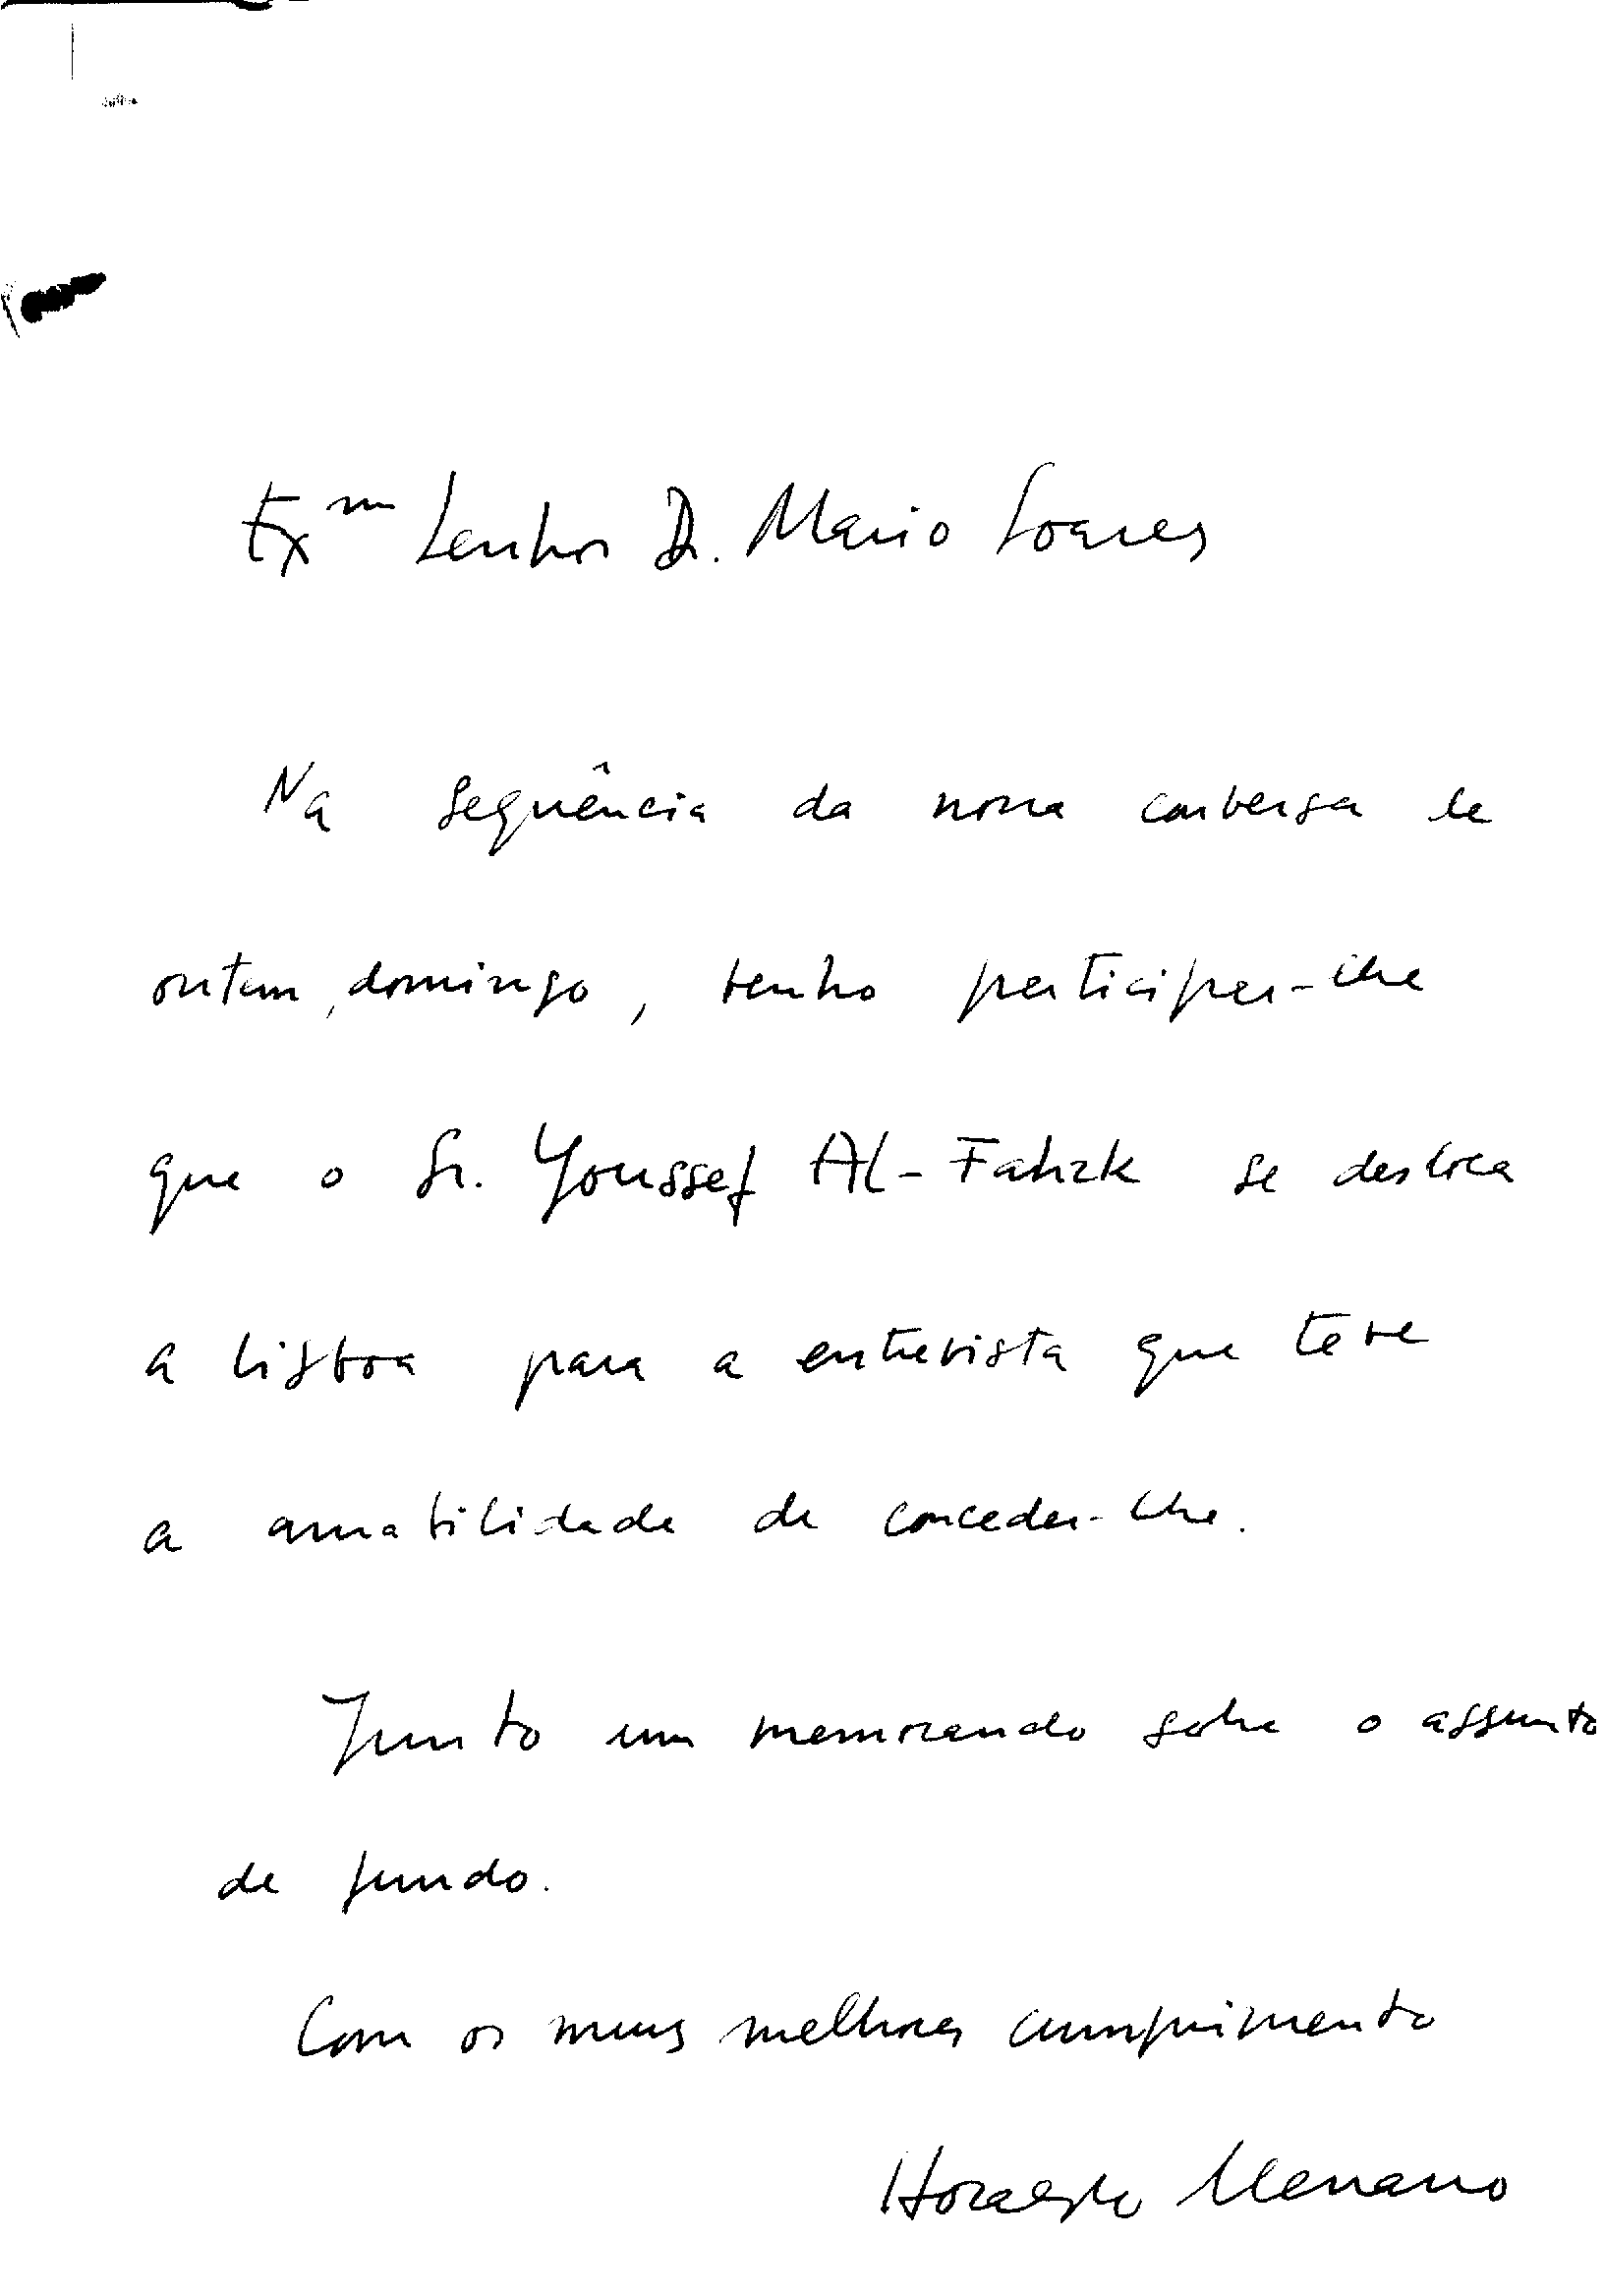 Exmo Senhor Dr. Mario Soares
Na sequência da nossa conversa de
ontem, domingo, venho participar-lhe
que o Sr. Youssef Al-Fahzk se desloca
a Lisboa para a entrevista que teve
a amabilidade de conceder-lhe.
Junto um memorando sobre o assunto
de fundo.
Com os meus melhores cumprimentos
Horacio Menano